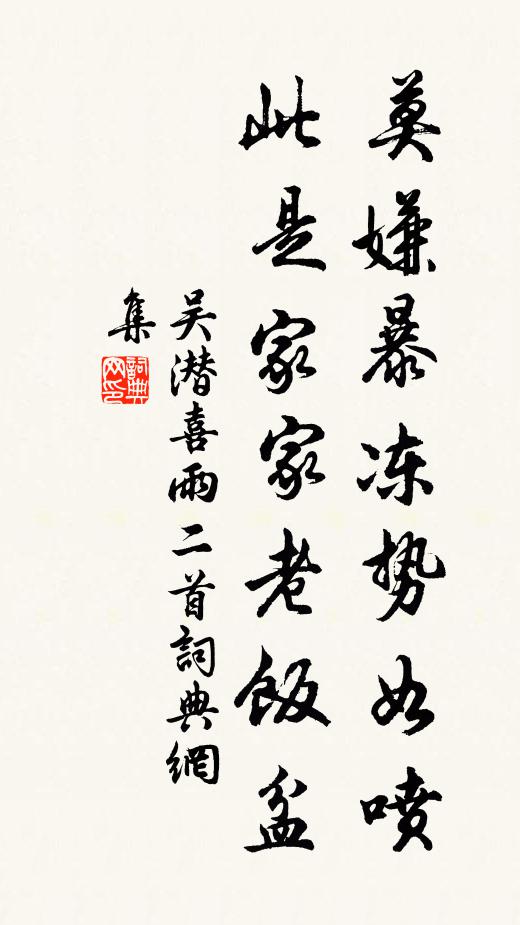 莫嫌暴冻势如喷
此是家家老饭盆
吴潜喜雨二首詞典網
集
詞典网印